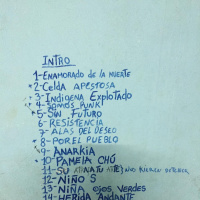 INTRO
1-ENAMORADO DE LA MUERTE
2-CELDA APESTOSA
3-INDIGENA EXPLOTADO
4-SOMOS PUNK
5-SIN FUTURO
6-RESISTENCIA
7-ALAS DEL DESEO
8-POR EL PUEBLO
9-ANARKIA
10-PAMELA CHÚ
11-SU
12-NIÑO S
13-NIÑA OJOS VERDES
14-HERIDA ANDANTE